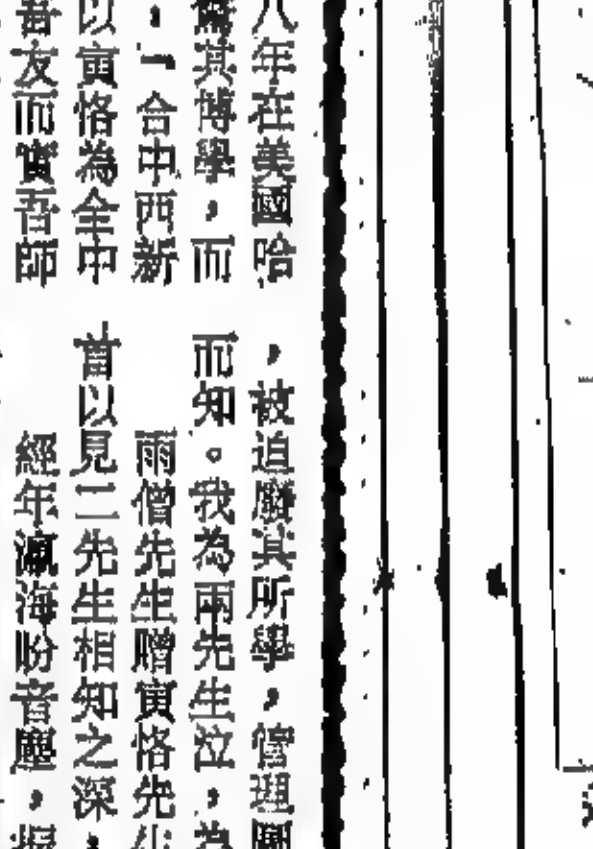 八年在美國哈
其博學，而
，「合中西新
以寅恪為全中
吾友而實吾師
，被迫廢其所學，管理圖
而知。我為兩先生泣，為
雨僧先生贈寅恪先生
首以見二先生相知之深，
經年瀛海盼音塵，